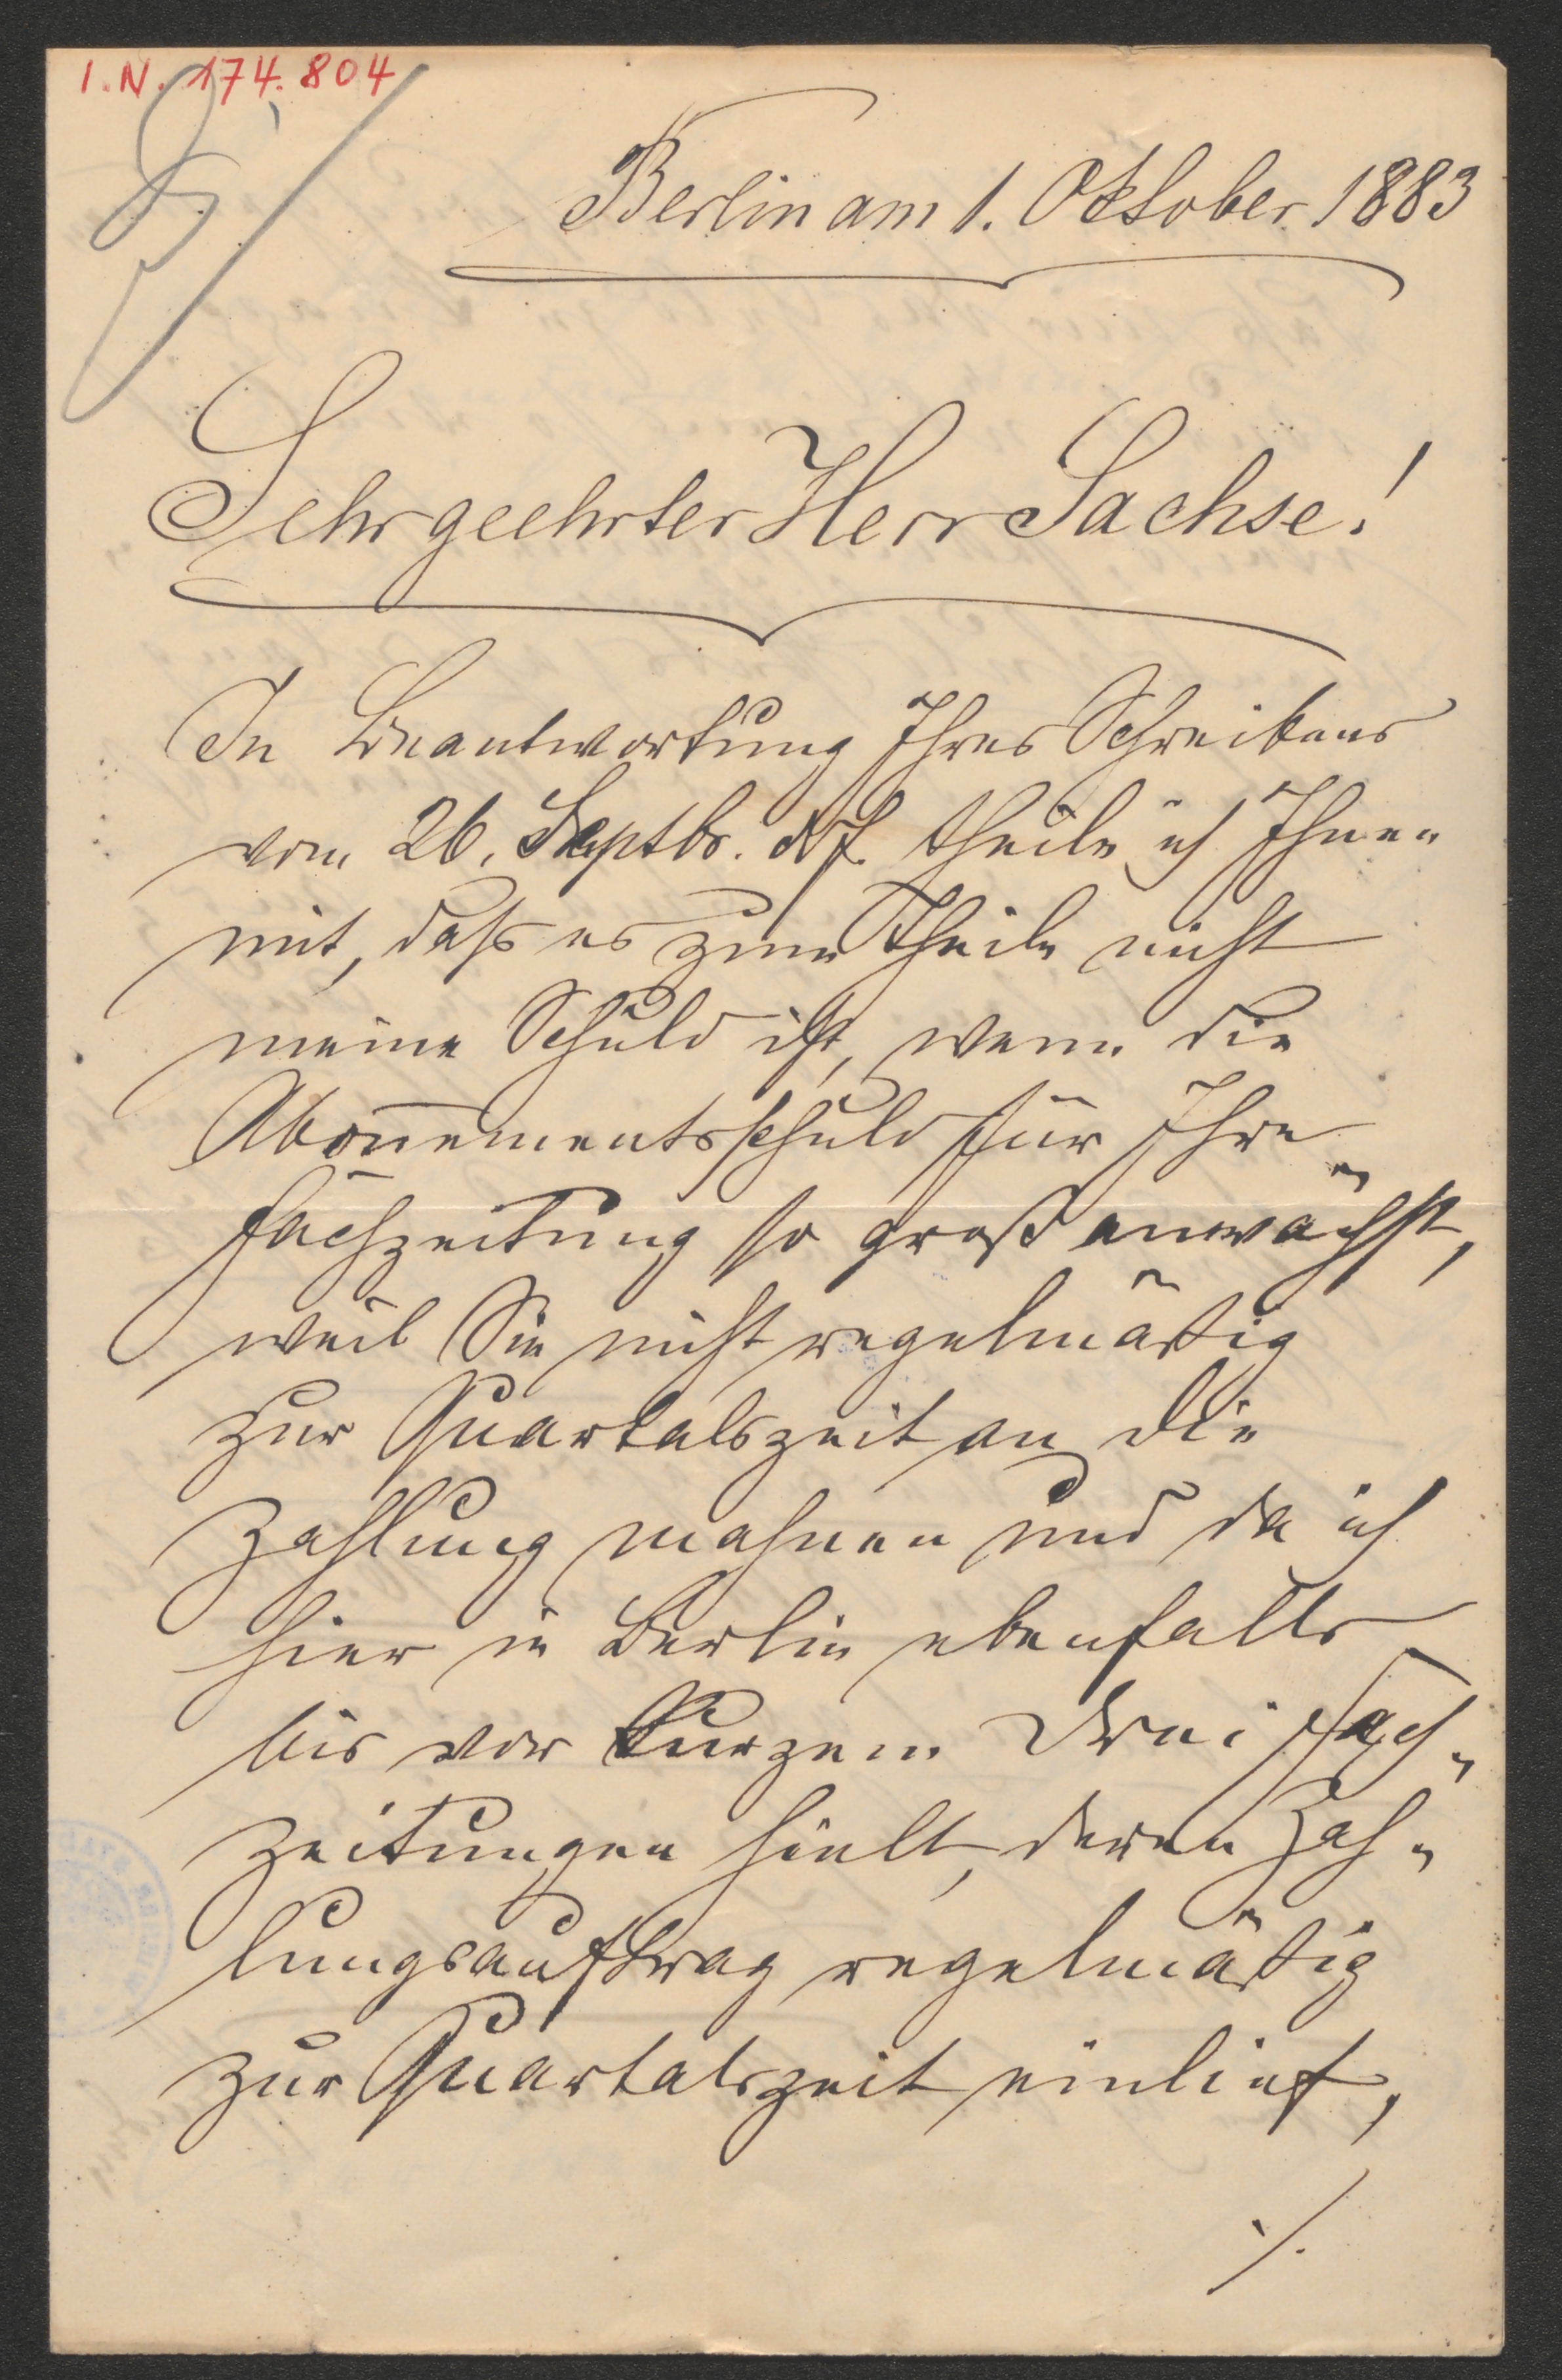 I.N. 174.804
Berlin am 1. Oktober 1883
Sehr geehrter Herr Sachse!
In Beantwortung Ihres Schreibens
vom 26. Septbr. theile ich Ihnen
mit, daß es zum Theile nicht
meine Schuld ist, wenn die
Abon̄ementsschuld für Ihre
Fachzeitung so groß anwächst,
weil Sie nicht regelmäßig
zur Quartalszeit an die
Zahlung mahnen und da ich
hier in Berlin ebenfalls
bis vor Kurzem drei Fach-
zeitungen hielt, deren Zah-
lungsauftrag regelmäßig
zur Quartalszeit einlief,
./.